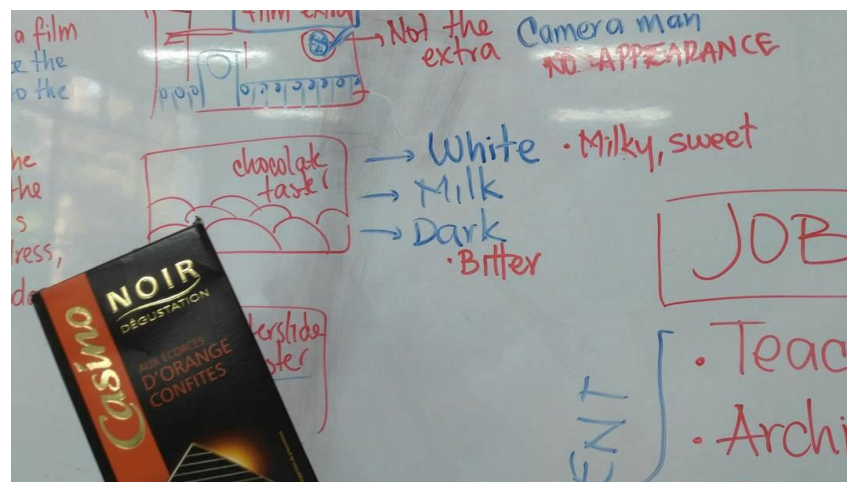 a film
the
o the
film extra
Not the
extra
Camera man
NO APPEARANCE
he
the
s
ress,
de
chocolate
taster
White
Milk
Dark
• Milky, sweet
• Bitter
JOB
erslide
ster
ENT
• Teac
• Archi
Casino
NOIR
DÉGUSTATION
AUX ÉCORCES
D'ORANGE
CONFITES